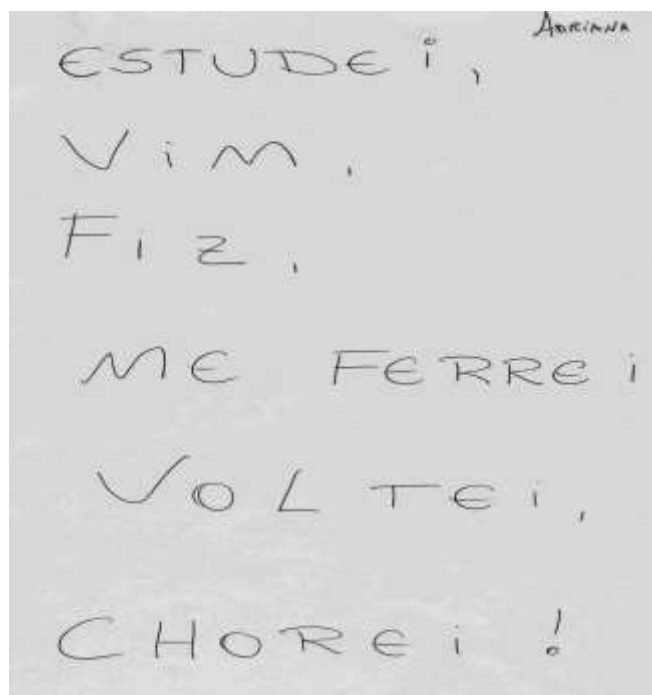 ADRIANA
ESTUDEi,
ViM,
FiZ,
ME FERREi
VOLTEi,
CHOREi!